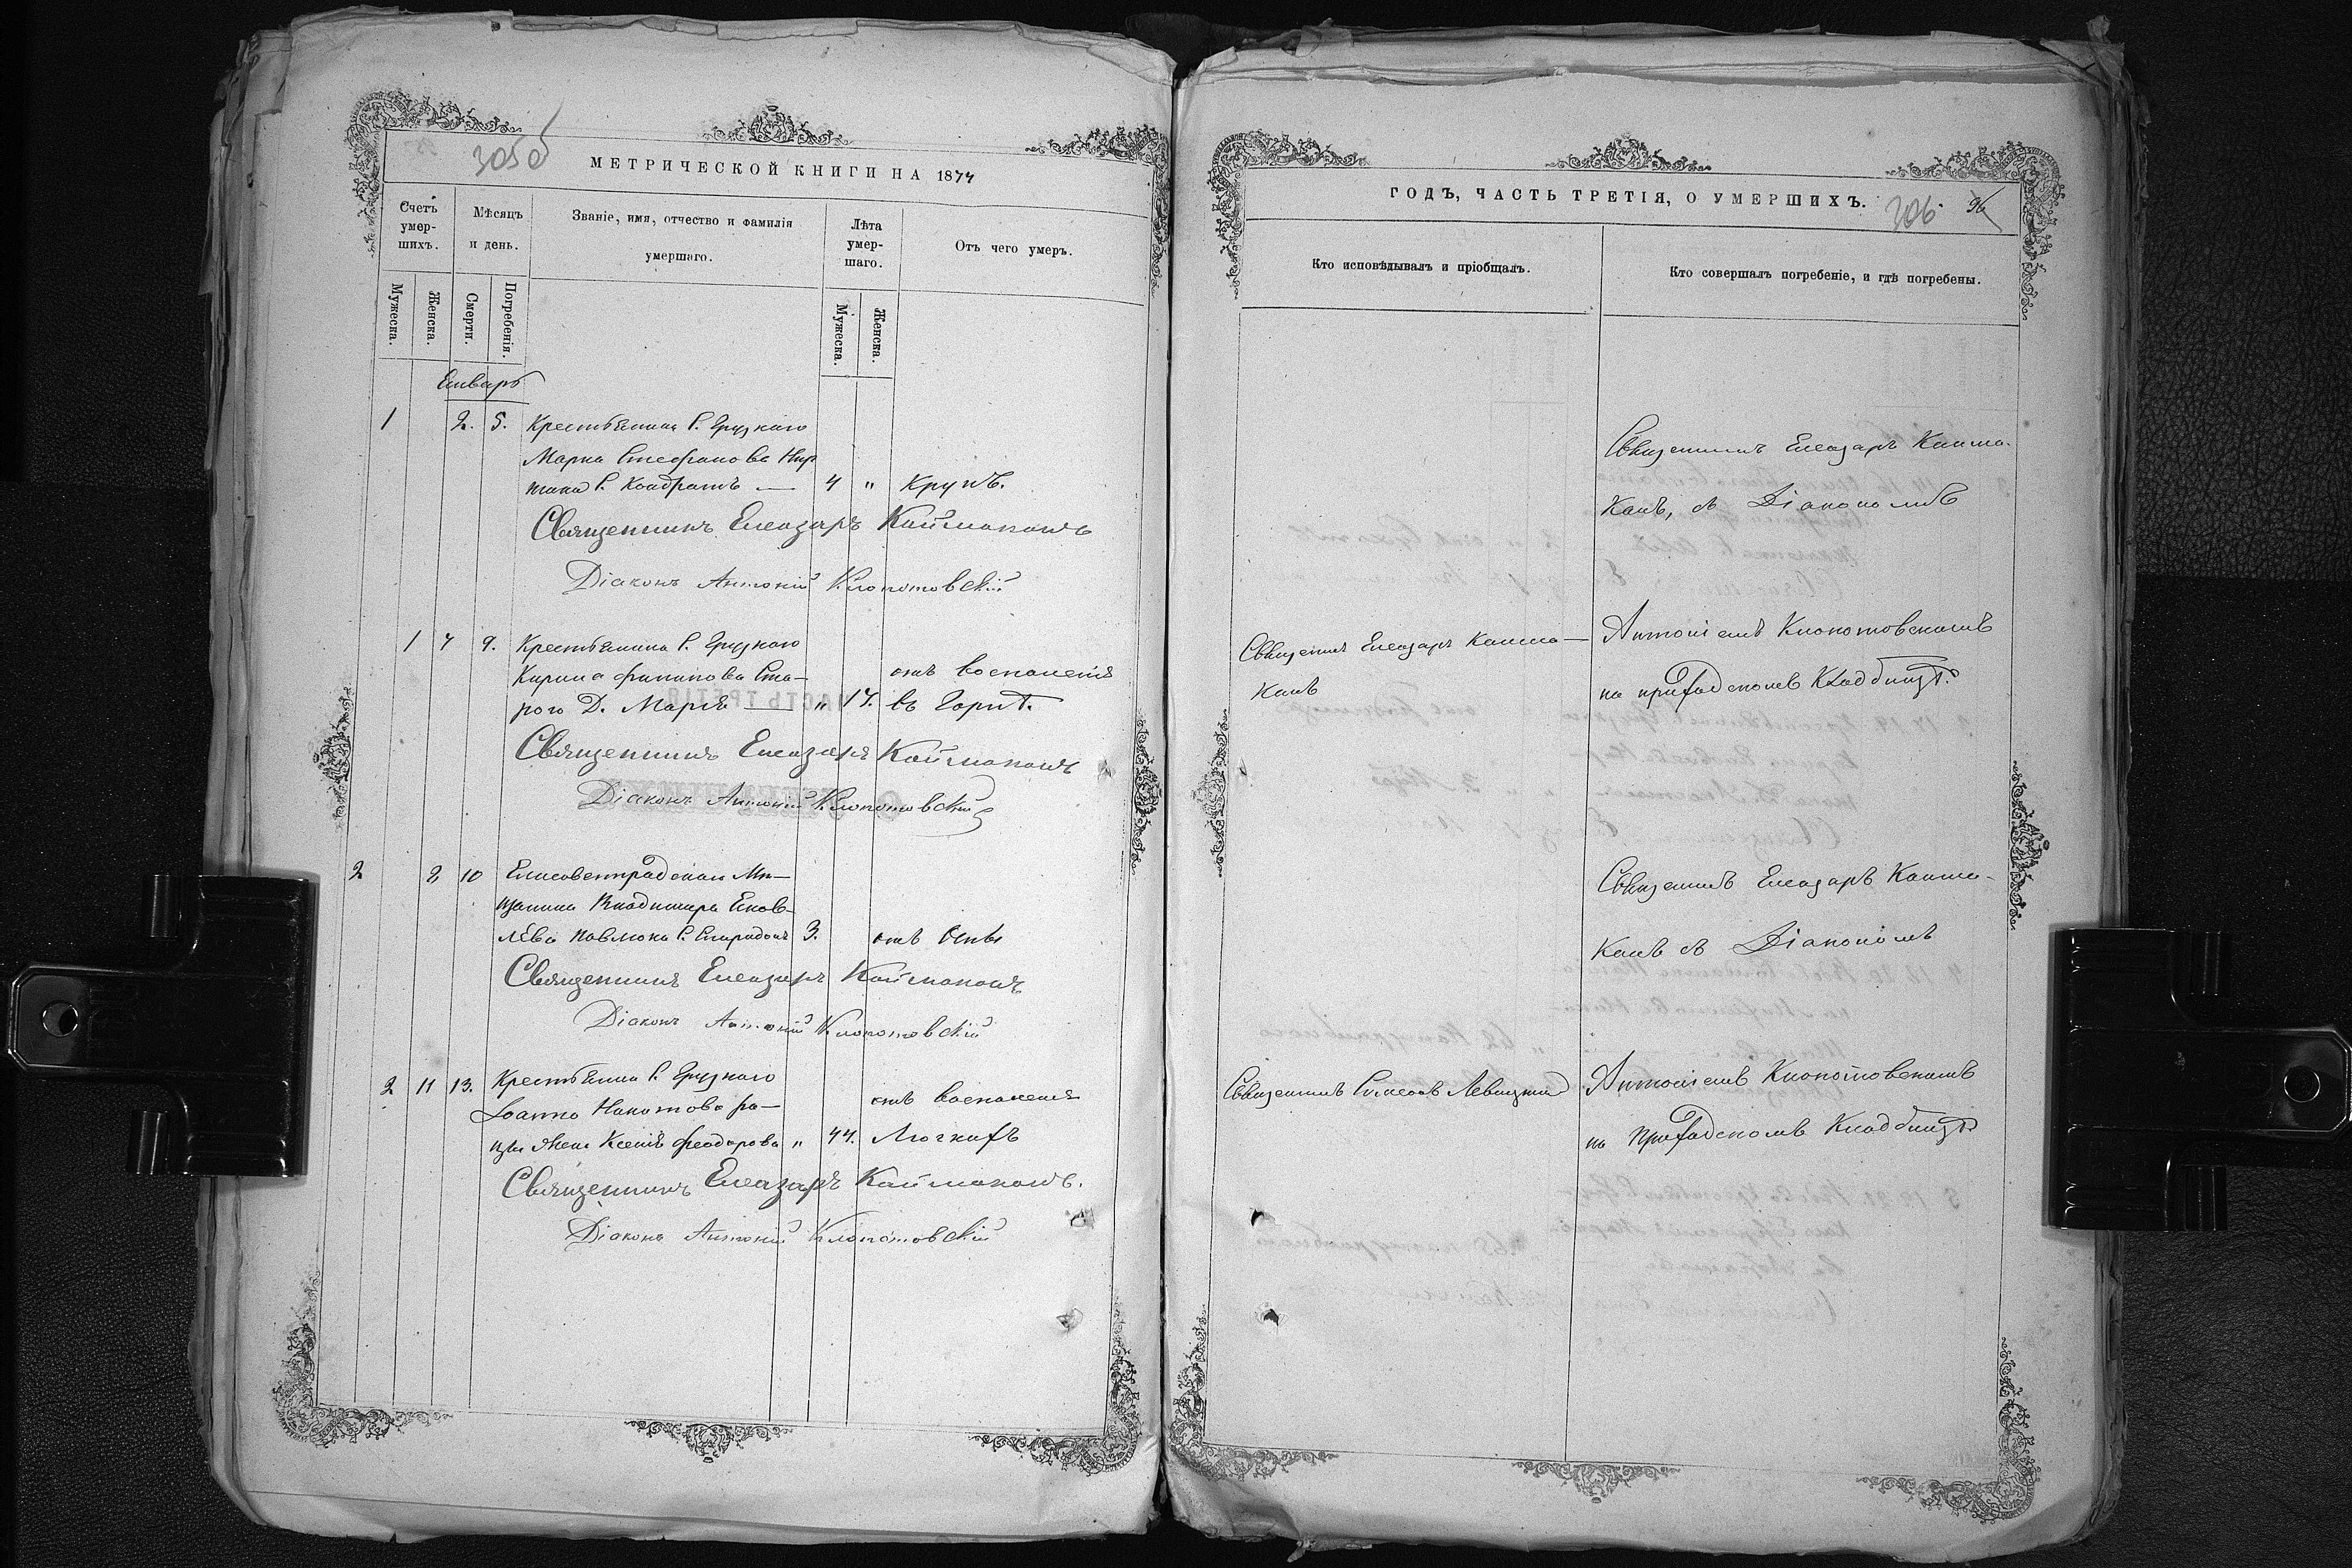 305 об
МЕТРИЧЕСКОЙ КНИГИ НА 1874
Счетъ умер-шихъ.
Мѣсяцъ и день.
Званіе, имя, отчество и фамилія умершаго.
Лѣта умер-шаго.
Отъ чего умеръ.
Мужеска.
Женска.
Смерти.
Погребенія.
Мужеска.
Женска.
Енварь
1 2. 5. Крестьянина С. Грузкаго
Марка Стефанова
С. Кондратъ — 4 " Крупъ.
Священникъ Елеазаръ Каймаканъ
Діаконъ Антоній Клопотовскій
1 7 9. Крестьянина С. Грузкаго
Кирила Филипова Ста- отъ воспаленія
рого Д. Марія — " 17. въ Горлѣ.
Священникъ Елеазаръ Каймаканъ
Діаконъ Антоній Клопотовскій
2 8 10 Елисаветградскаго Мѣ-
щанина Владимира Яков-
лева Павлюка С. Спиридонъ 3. отъ Оспы
Священникъ Елеазаръ Каймаканъ
Діаконъ Антоній Клопотовскій
2 11 13. Крестьянина С. Грузкаго
Іоанна отъ воспаленія
жена Ксенія Феодорова " 44. Легкихъ
Священникъ Елеазаръ Каймаканъ.
Діаконъ Антоній Клопотовскій
ГОДЪ, ЧАСТЬ ТРЕТІЯ, О УМЕРШИХЪ.
306. 96
Кто исповѣдывалъ и пріобщалъ.
Кто совершалъ погребеніе, и гдѣ погребены.
Священникъ Елеазаръ Кайма-
канъ, съ Діакономъ
Священникъ Елеазаръ Кайма-
канъ
Антоніемъ Клопотовскимъ
на приходскомъ Кладбищѣ.
Священникъ Елеазаръ Кайма-
канъ съ Діакономъ
Священникъ Левицкій
Антоніемъ Клопотовскимъ
на Приходскомъ Кладбищѣ